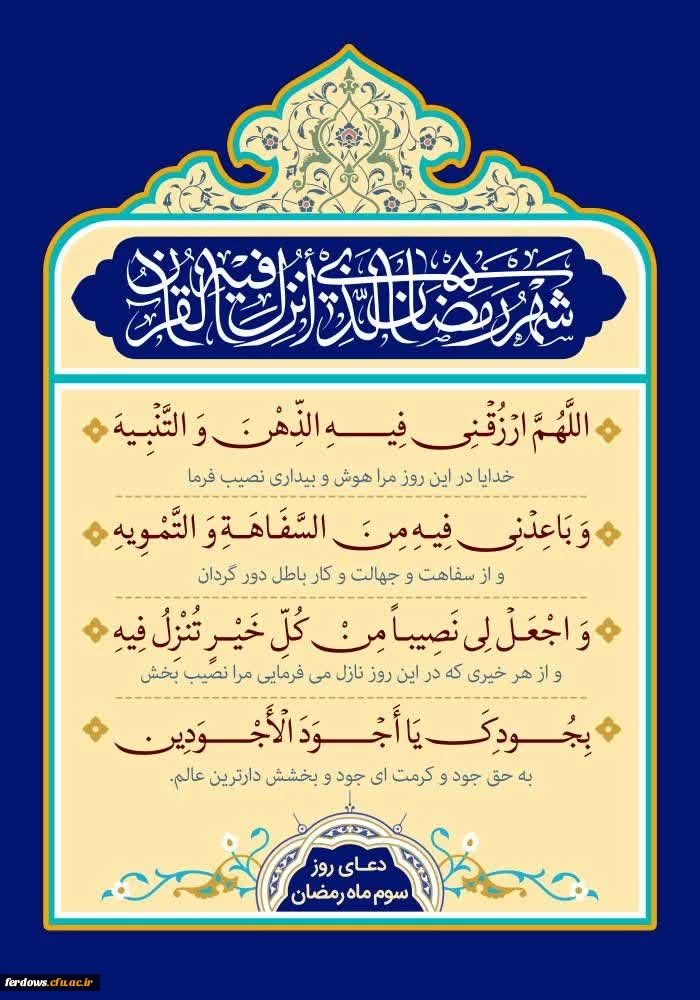 شَهْرُ رَمَضَانَ الَّذِي أُنْزِلَ فِيهِ الْقُرْآنُ
اللَّهُمَّ ارْزُقْنِي فِيهِ الذِّهْنَ وَ التَّنْبِيهَ
خدایا در این روز مرا هوش و بیداری نصیب فرما
وَ بَاعِدْنِي فِيهِ مِنَ السَّفَاهَةِ وَ التَّمْوِيهِ
و از سفاهت و جهالت و کار باطل دور گردان
وَ اجْعَلْ لِي نَصِيباً مِنْ كُلِّ خَيْرٍ تُنْزِلُ فِيهِ
و از هر خیری که در این روز نازل می فرمایی مرا نصیب بخش
بِجُودِكَ يَا أَجْوَدَ الْأَجْوَدِينَ
به حق جود و کرمت ای جود و بخشش دارترین عالم.
دعای روز
سوم ماه رمضان
ferdows.cfu.ac.ir